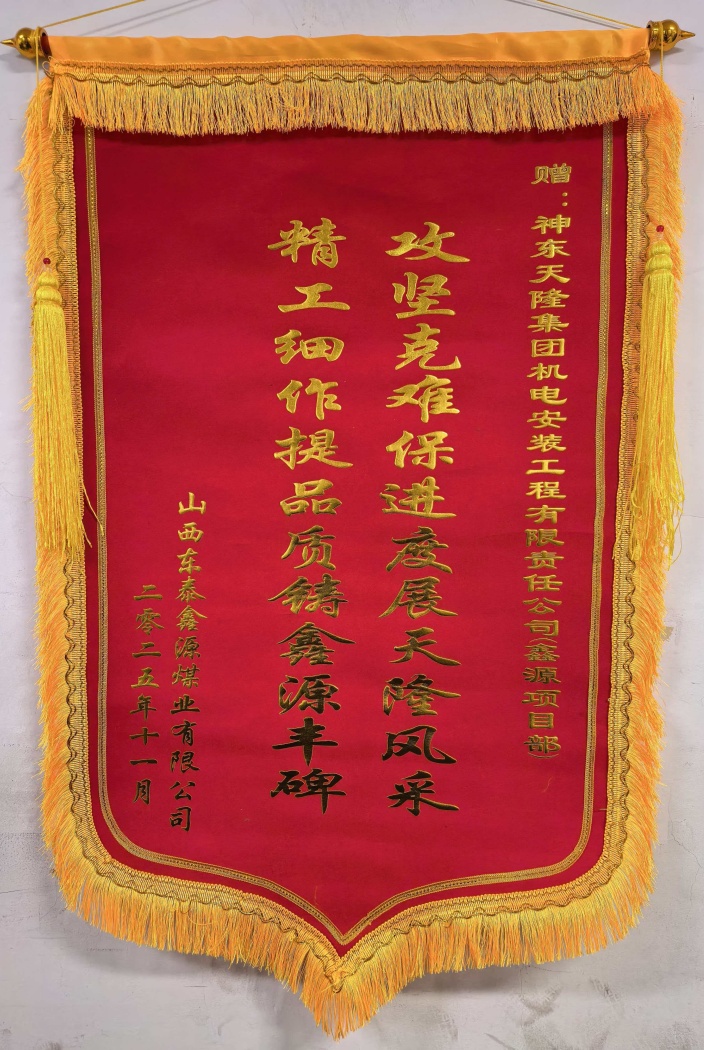 赠：神东天隆集团机电安装工程有限责任公司(鑫源项目部)
攻坚克难保进度展天隆风采
精工细作提品质铸鑫源丰碑
山西东泰鑫源煤业有限公司
二零二五年十一月